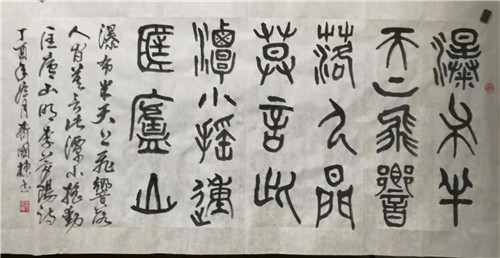 瀑布半
天上飛響
落人間
莫言此
潭小搖動
匡廬山
瀑布半天上飛響落
人間莫言此潭小搖動
匡廬山明李夢陽詩
丁酉年月國書